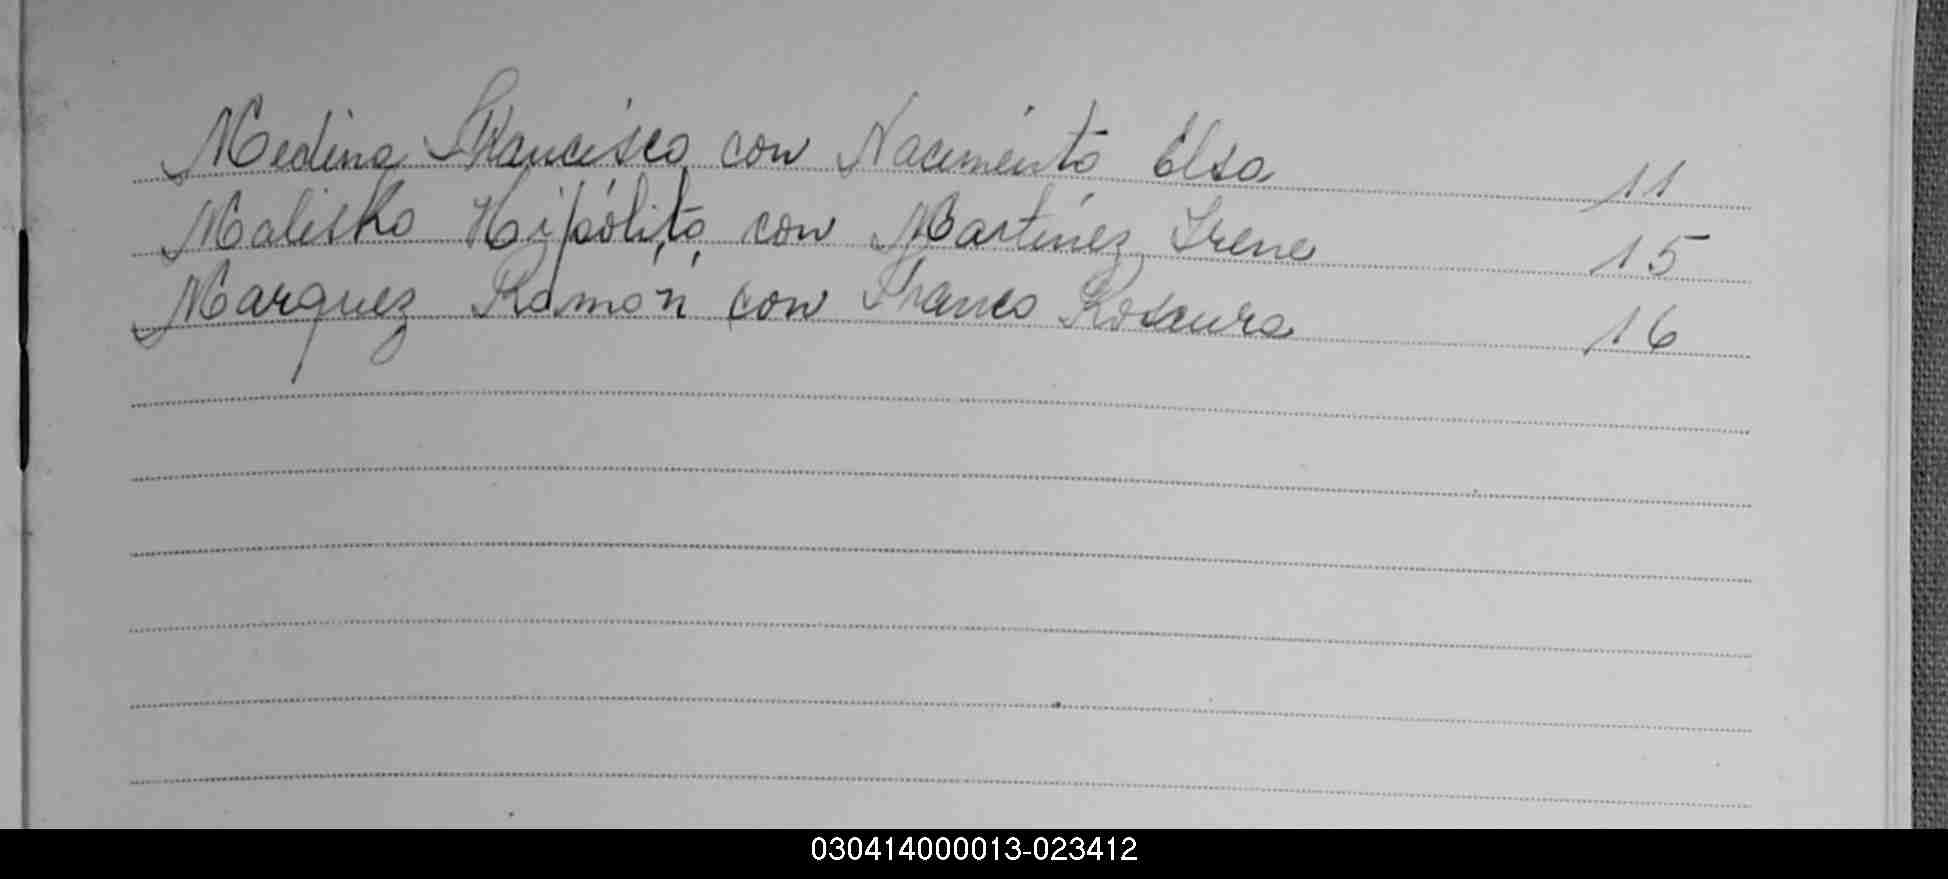 Medina Francisco con Nacimento Elsa 11
Malisko Hipólito con Martínez Irene 15
Marquez Ramón con Franco Rosaura 16
030414000013-023412